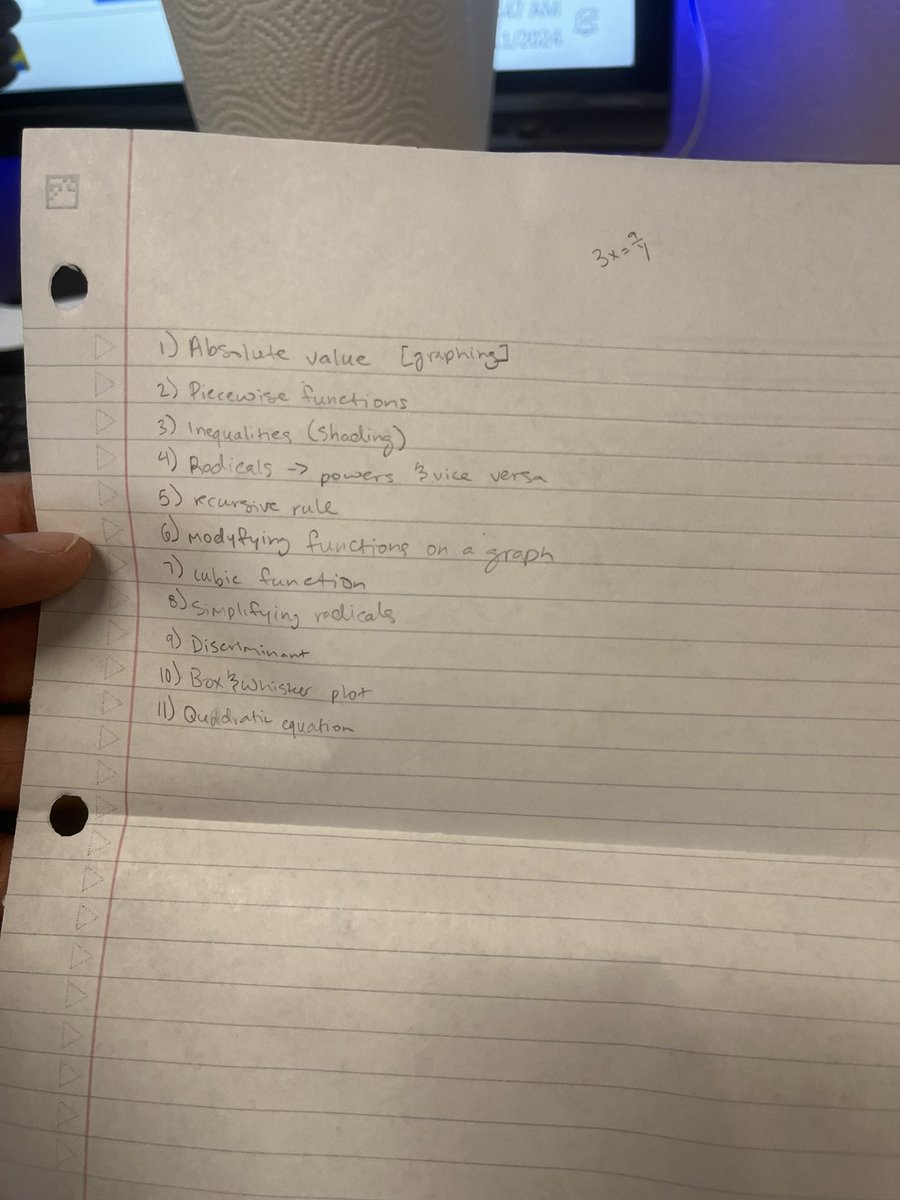 :47 AM
1/2024
3x=9/y
1) Absolute value [graphing]
2) Piecewise functions
3) Inequalities (Shading)
4) Radicals -> powers & vice versa
5) recursive rule
6) Modyfying functions on a graph
7) cubic function
8) Simplifying radicals
9) Discriminant
10) Box & whisker plot
11) Quadratic equation